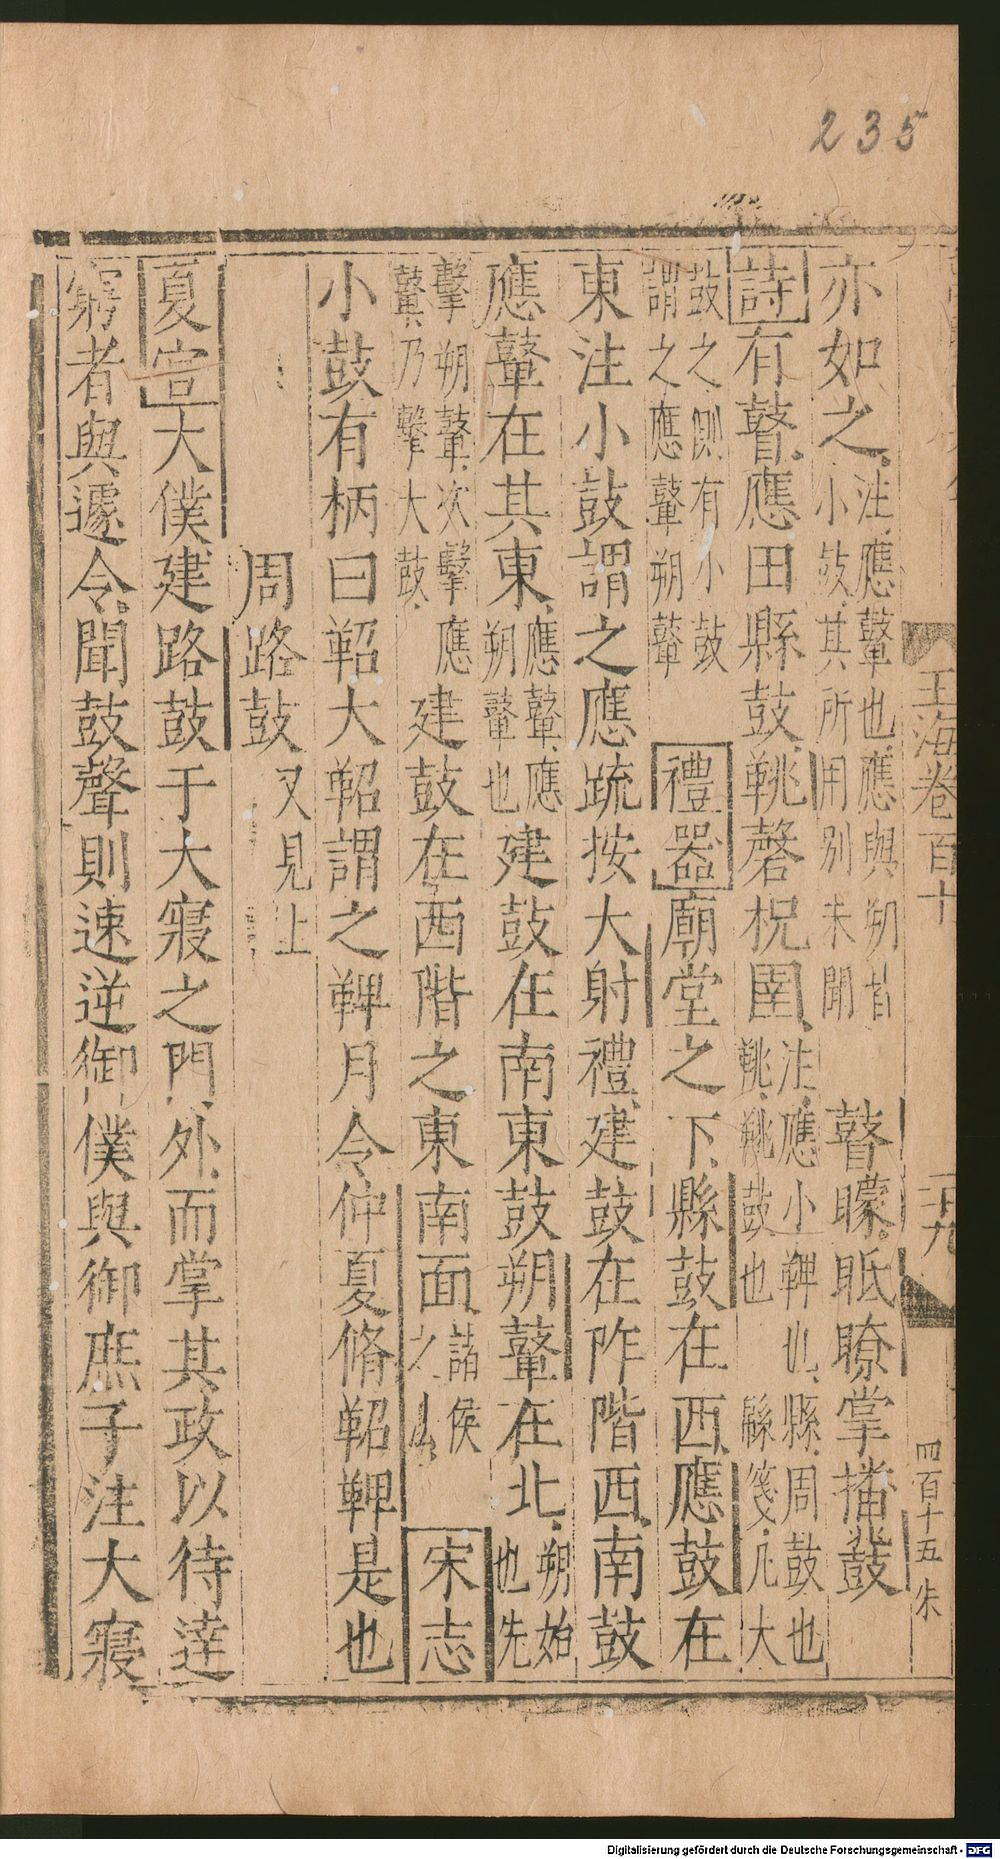 235
亦如之注應鼙也應與朔皆小鼓其所用別未聞瞽矇眡瞭掌播鼗
詩有瞽應田縣鼓鞉磬柷圉注應小鞞也縣周鼓也鞉鞉鼓也
鼓之側有小鼓謂之應鼙朔鼙禮器廟堂之下縣鼓在西應鼓在
東注小鼓謂之應疏按大射禮建鼓在阼階西南鼓
應鼙在其東應鼙應朔鼙也建鼓在南東鼓朔鼙在北朔始也先
擊朔鼙次擊應鼙乃擊大鼓建鼓在西階之東南面諸侯之宋志
小鼓有柄曰鞀大鞀謂之鞞月令仲夏脩鞀鞞是也
周路鼓又見上
夏官大僕建路鼓于大寢之門外而掌其政以待達
窮者與遽令聞鼓聲則速逆御僕與御庶子注大寢
玉海卷百十
二十九
四百十五朱
Digitalisierung gefördert durch die Deutsche Forschungsgemeinschaft - DFG